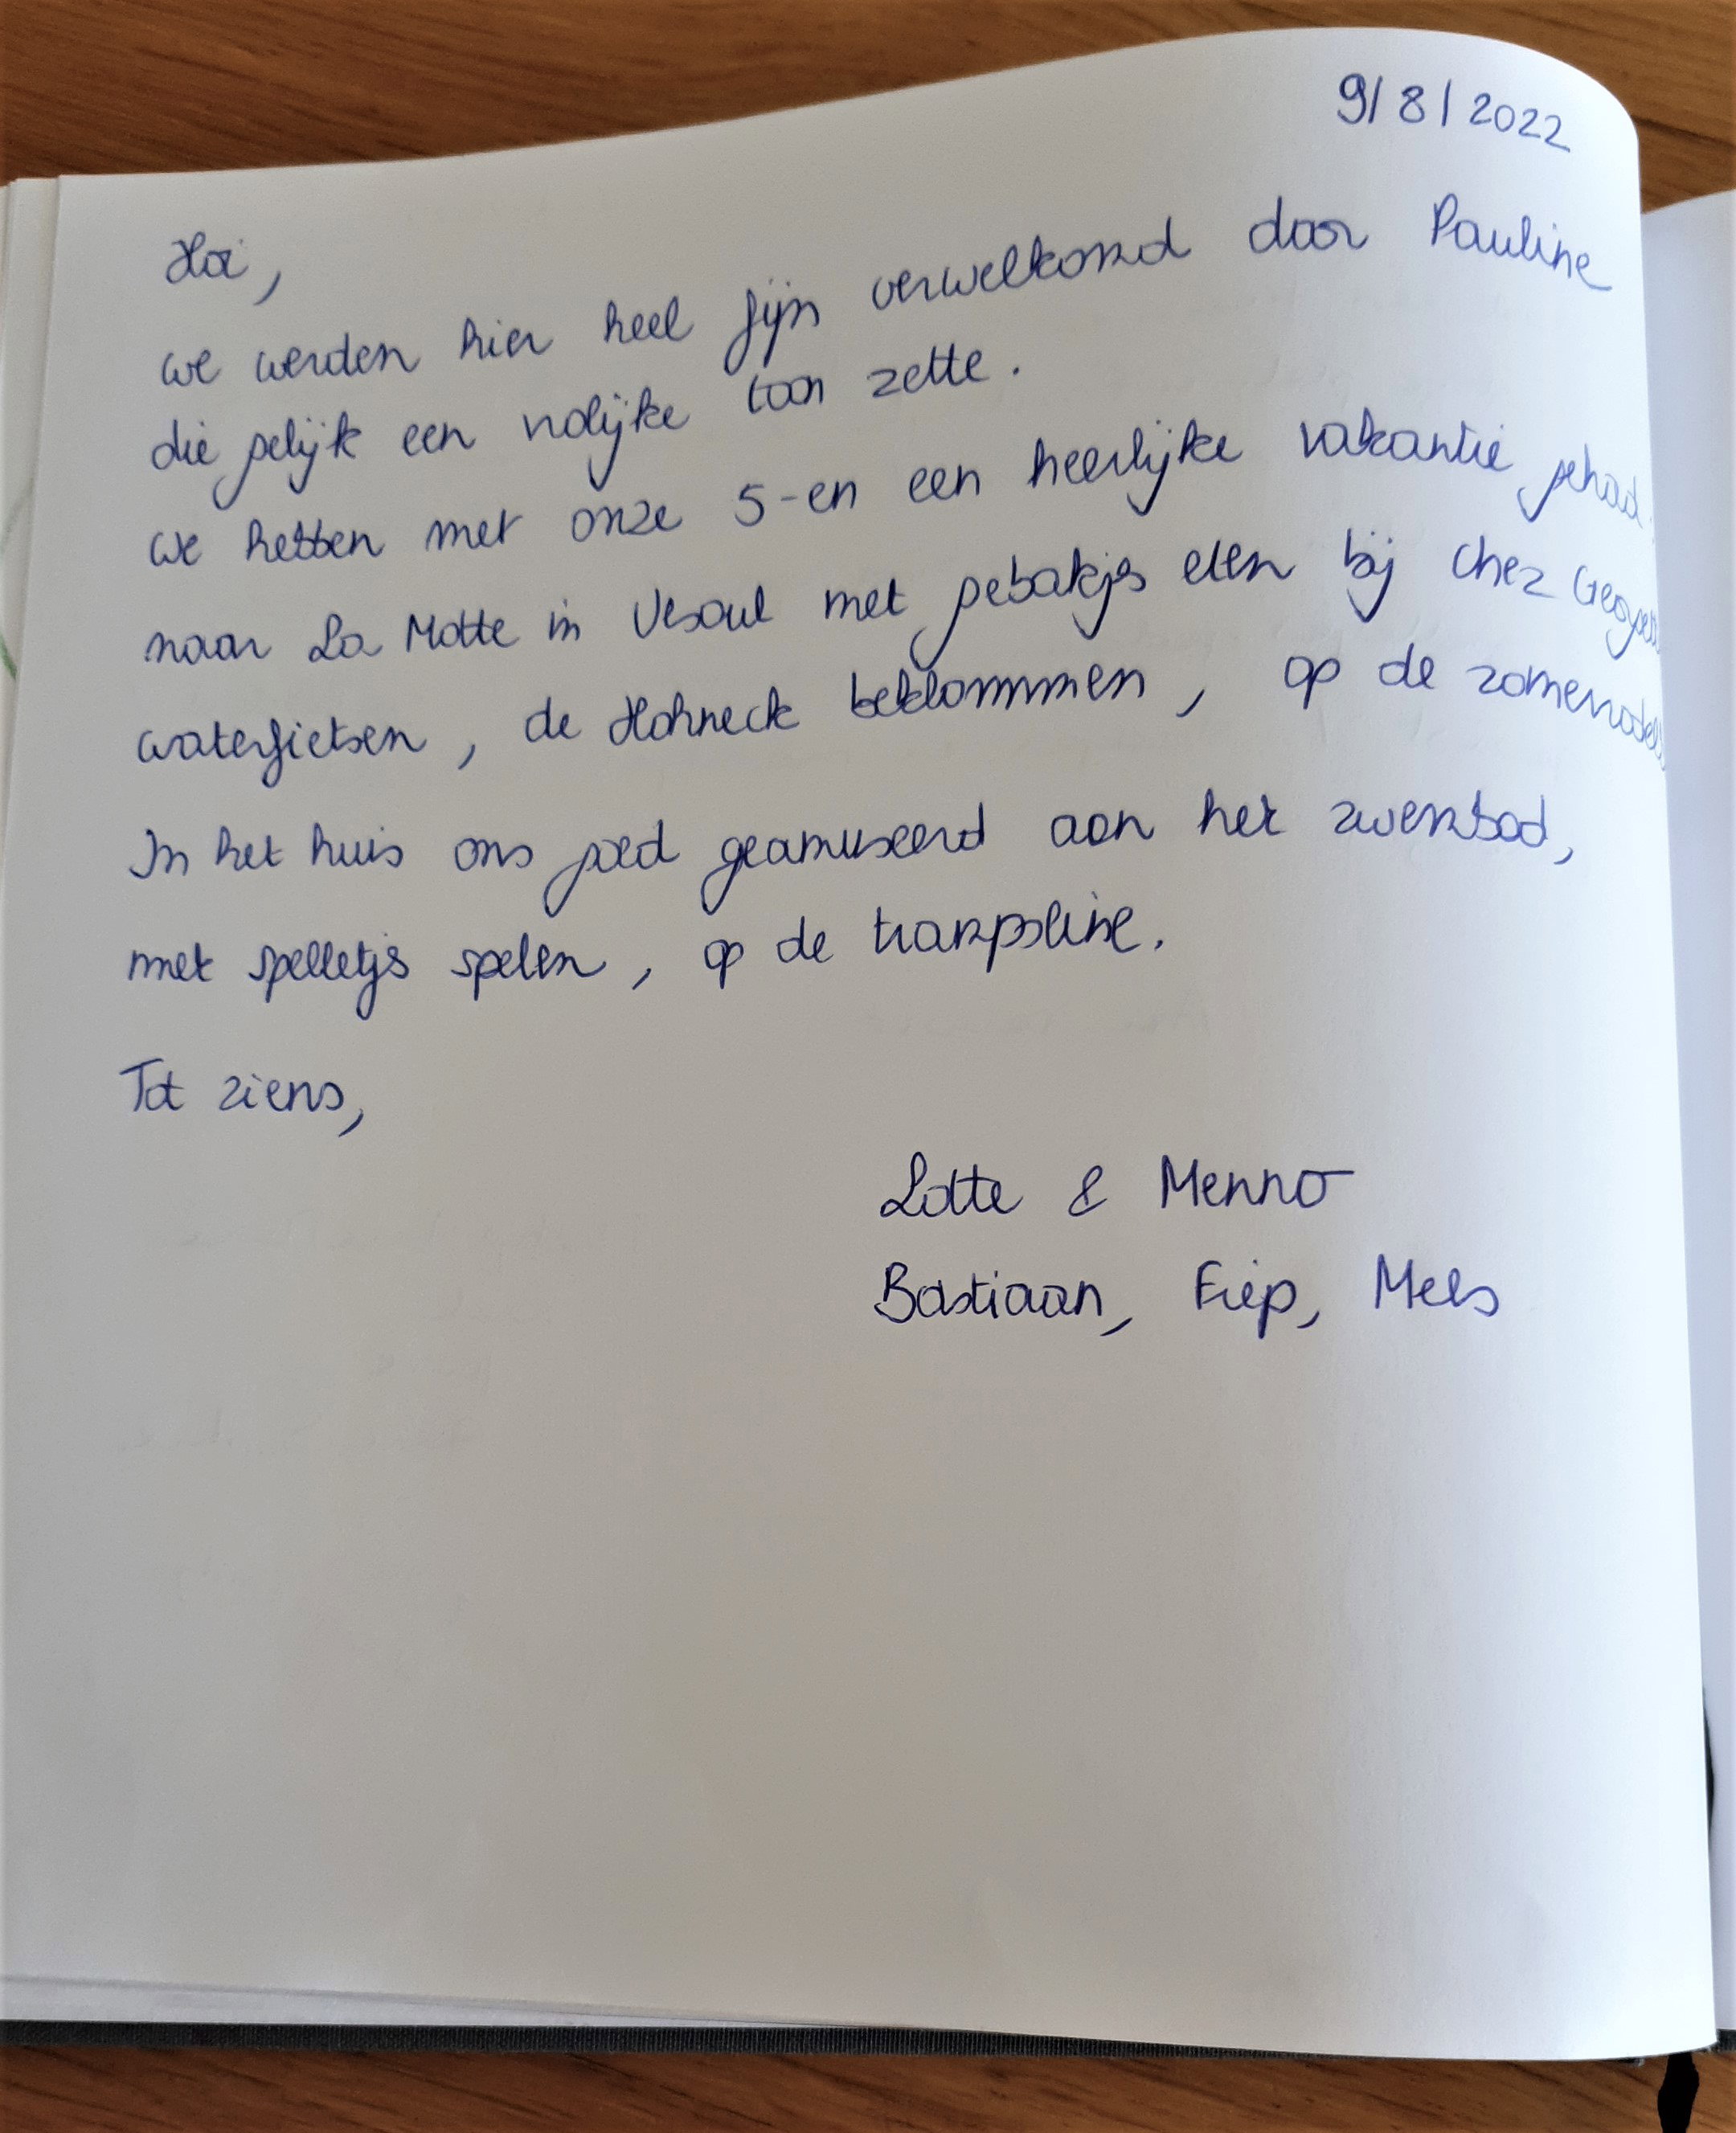 9/8/2022
Hoi,
we werden hier heel fijn verwelkomd door Pauline
die gelijk een vrolijke toon zette.
we hebben met onze 5-en een heerlijke vakantie gehad:
naar La Motte in Vesoul met gebakjes eten bij Chez
waterfietsen, de Hohneck beklommmen, op de
In het huis ons goed geamuseerd aan het zwembad,
met spelletjs spelen, op de trampoline.
Tot ziens,
Lotte & Menno
Bastiaan, Fiep, Mels